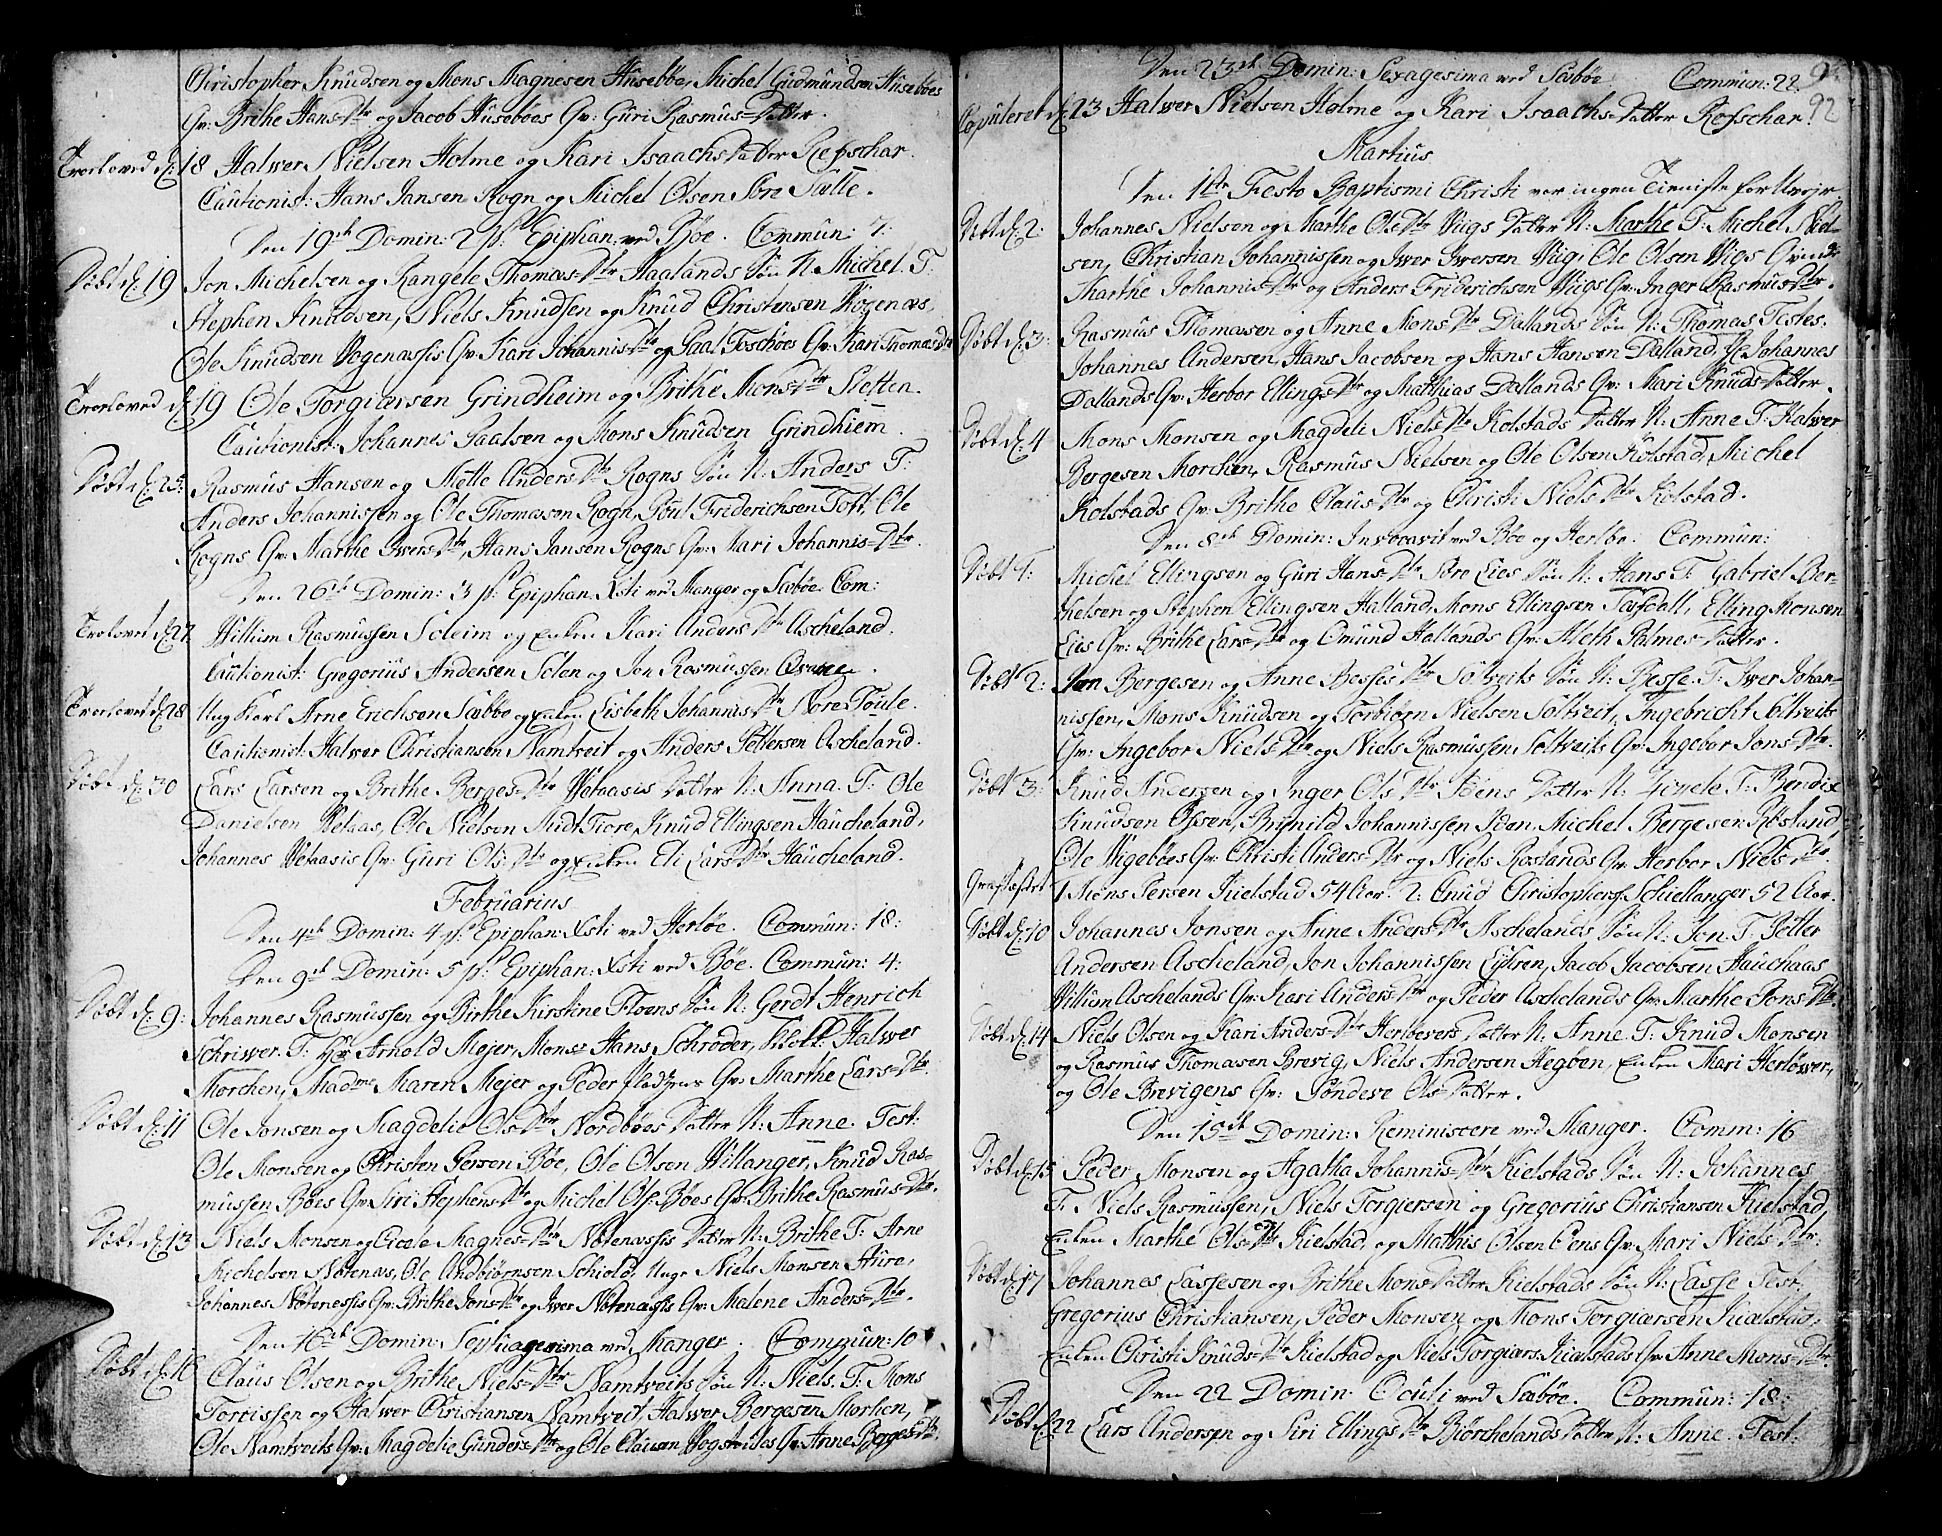 Christopher Knudsen og Mons Magnesen Husebøe, Michel Gudmundsen Husebøes
Qv: Brithe Hans-Dtr og Jacob Husebøes Qv: Guri Rasmus-Datter.
Troeloved d: 18 Halwer Nielsen Holme og Kari Isaachs Datter Refschar.
Cautionist: Hans Jansen Rogn og Michel Olsen Søre Sætte.
Den 19de Domin: 2 p: Epiphan: ved Bøe. Commun: 7:
Døbt d: 19 Jon Michelsen og Rangele Thomas-Dtr Haalands Søn N: Michel. T:
Stephen Knudsen, Niels Knudsen og Knud Christensen Wogenæs,
Ole Knudsen Wogenæssis Qv: Kari Johannis-Dtr og Paal Toschøes Qv: Kari Thomas Dtr
Troeloved d: 19 Ole Torgiersen Grindheim og Brithe Mons-Dtr Sletten.
Cautionist: Johannes Paalsen og Mons Knudsen Grindhiem.
Døbt d: 25: Rasmus Hansen og Mette Anders-Dtr Rogns Søn N: Anders T:
Anders Johannissen og Ole Thomassen Rogn, Poul Friderichsen Toft, Ole
Rogns Qv: Marthe Iwers-Dtr, Hans Jansen Rogns Qv: Mari Johannis-Dtr
Den 26de Domin: 3 p: Epiphan: Xsti ved Manger og Sæbøe. Com:
Trolovet d: 27. Willum Rasmussen Soleim og Enken Kari Anders Dtr Ascheland.
Cautionist: Gregorius Andersen Solen og Jon Rasmussen
Troelovet d: 28 Ung Karl Arne Erichsen Sæbbø og Enken Lisbeth Johannis Dtr Nore Toule.
Cautionist: Halwer Christiansen Namtveit og Anders Pettersen Ascheland.
Døbt d: 30 Lars Larsen og Brithe Berges-Dtr Wetaasis Datter N: Anna. T: Ole
Danielsen Wetaas, Ole Nielsen Midt Fiore, Knud Ellingsen Haucheland,
Johannes Wetaasis Qv: Guri Ols-Dtr og Enken Eli Lars-Dtr Haucheland.
Februarius
Den 4de Domin: 4 p: Epiphan: Xsti ved Herløe. Commun: 18:
Den 9de Domin: 5 p: Epiphan: Xsti ved Bøe. Commun: 4:
Døbt d: 9: Johannes Rasmussen og Birthe Kirstine Floens Søn N: Gerdt Henrich
Schriwer. T: Hr Arnold Mejer, Mons: Hans Schrøder, Halwe
Morchen, Madme Maren Mejer og Peder Qv: Marthe Lars-Dtr.
Døbt d: 11 Ole Jonsen og Magdelie Ols-Dtr Nordbøes Datter N: Anne. Test:
Ole Monsen og Christen Jensen Bøe, Ole Olsen Willanger, Knud Ras-
mussen Bøes Qv: Siri Stephens-Dtr og Michel Ols: Bøes Qv: Brithe Rasmus-Dtr.
Døbt d: 13 Niels Monsen og Cicele Magnes-Dtr Nøtenæssis Datter N: Brithe T: Arne
Michelsen Nøtenæs, Ole Andbiørnsen Schiold, Unge Niels Monsen Hure,
Johannes Nøtenæssis Qv: Brithe Jons-Dtr og Iwer Nøtenæssis Qv: Malene Anders-Dtr.
Den 16de Domin: Septuagesima ved Manger. Commun: 10
Døbt d: 16 Claus Olsen og Brithe Niels-Dtr Namtveits Søn N: Niels. T: Mons
Torrissen og Halwer Christiansen Namtveit, Halwer Bergesen Morken,
Ole Namtveits Qv: Magdelie Gunders-Dtr og Ole Clausen Qv: Anne Berges-Dtr.
Den 23de Domin: Sexagesima ved Sæbøe. Commun: 22.
92
Copuleret d: 23 Halwer Nielsen Holme og Kari Isaachs-Datter Refschar.
Martius
Den 1ste Festo Baptismi Christi var ingen Tieniste for Uvejr
Døbt d: 2: Johannes Nielsen og Marthe Ols Dtr Wiigs Datter N: Marthe T: Michel Niel-
sen, Christian Johannissen og Iwer Iwersen Wiig, Ole Olsen Wigs Qvinde
Marthe Johannis-Dtr og Anders Friderichsen Wiigs Qv: Inger Rasmus Dtr.
Døbt d: 3: Rasmus Thomassen og Anne Mons-Dtr Dallands Søn N: Thomas Testes.
Johannes Andersen, Hans Jacobsen og Hans Hansen Dalland, Johannes
Dallands Qv: Herbor Ellings Dtr og Matthias Dallands Qv: Mari Knuds-Datter.
Døbt d: 4 Mons Monsen og Magdeli Niels Dtr Kolstads Datter N: Anne T: Halwer
Bergesen Morchen, Rasmus Nielsen og Ole Olsen Kolstad, Michel
Kolstads Qv: Brithe Claus-Dtr og Christi Niels Dtr Kolstad.
Den 8de Domin: Invocavit ved Bøe og Herløe. Commun:
Døbt 1: Michel Ellingsen og Guri Hans-Dtr Søre Eies Søn N: Hans T: Gabriel Ber-
thelsen og Stephen Ellingsen Halland, Mons Ellingsen Tosdall, Elling Monsen
Eies Qv: Brithe Lars-Dtr og Omund Hallands Qv: Aleth Salmes-Datter.
Døbt 2: Jon Bergesen og Anne Besses Dtr Søltveits Søn N: Besse. T: Iwer Johan-
nissen, Mons Knudsen og Torbiørn Nielsen Søltveit, Ingebricht Søltveits
Qv: Ingebor Niels-Dtr og Niels Rasmussen Søltveits Qv: Ingebor Jons-Dtr.
Døbt 3: Knud Andersen og Inger Ols Dtr Søens Datter N: Zirele T: Bendix
Knudsen Ossen, Brynild Johannissen Iden, Michel Bergesen Røsland,
Ole Wigebøes Qv: Christi Anders-Dtr og Niels Røslands Qv: Herbor Niels Dtr.
Graffæstet 1 Mons Persen Kielstad 54 Aar. 2: Knud Christophers: Schiellanger 52 Aar.
Døbt d: 10 Johannes Jonsen og Anne Anders-Dtr Aschelands Søn N: Jon. T: Petter
Andersen Ascheland, Jon Johannissen Eikren, Jacob Jacobsen Hauchaas
Willum Aschelands Qv: Kari Anders Dtr og Peder Aschelands Qv: Marthe Pons-Dtr.
Døbt d: 14 Niels Olsen og Kari Anders-Dtr Herløevers Datter N: Anne. T: Knud Monsen
og Rasmus Thomasen Brevig, Niels Andersen Hegben, Enken Mari Herløwer,
og Ole Brevigens Qv: Sondeve Ols-Datter.
Den 15de Domin: Reminiscere ved Manger. Comm: 16
Døbt d: 15 Peder Monsen og Agatha Johannis-Dtr Kielstads Søn N: Johannes
T: Niels Rasmussen, Niels Torgiersen og Gregorius Christiansen Kielstad,
Enken Marthe Ols-Dtr Kielstad, og Matthis Olsen Eens Qv: Mari Niels-Dtr.
Døbt d: 17 Johannes Lassesen og Brithe Mons-Datter Kielstads Søn N: Lasse Test:
Gregorius Christiansen, Peder Monsen og Mons Torgiersen Kielstad,
Enken Christi Knuds-Dtr Kielstad og Niels Torgiers: Kielstads Qv: Anne Mons-Dtr.
Den 22 Domin: Oculi ved Sæbøe. Commun: 18:
Døbt d: 22 Lars Andersen og Siri Ellings Dtr Biørchelands Datter N: Anne. Test: